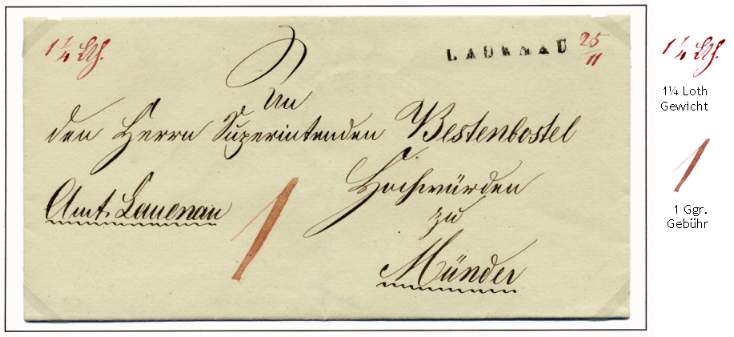 1¼ Lth.
LAUENAU 25/11
An
den Herrn Superintenden Bestenbostel
Hochwürden
Amt Lauenau
1
zu
Münder
1¼ Lth.
1¼ Loth
Gewicht
1
1 Ggr.
Gebühr